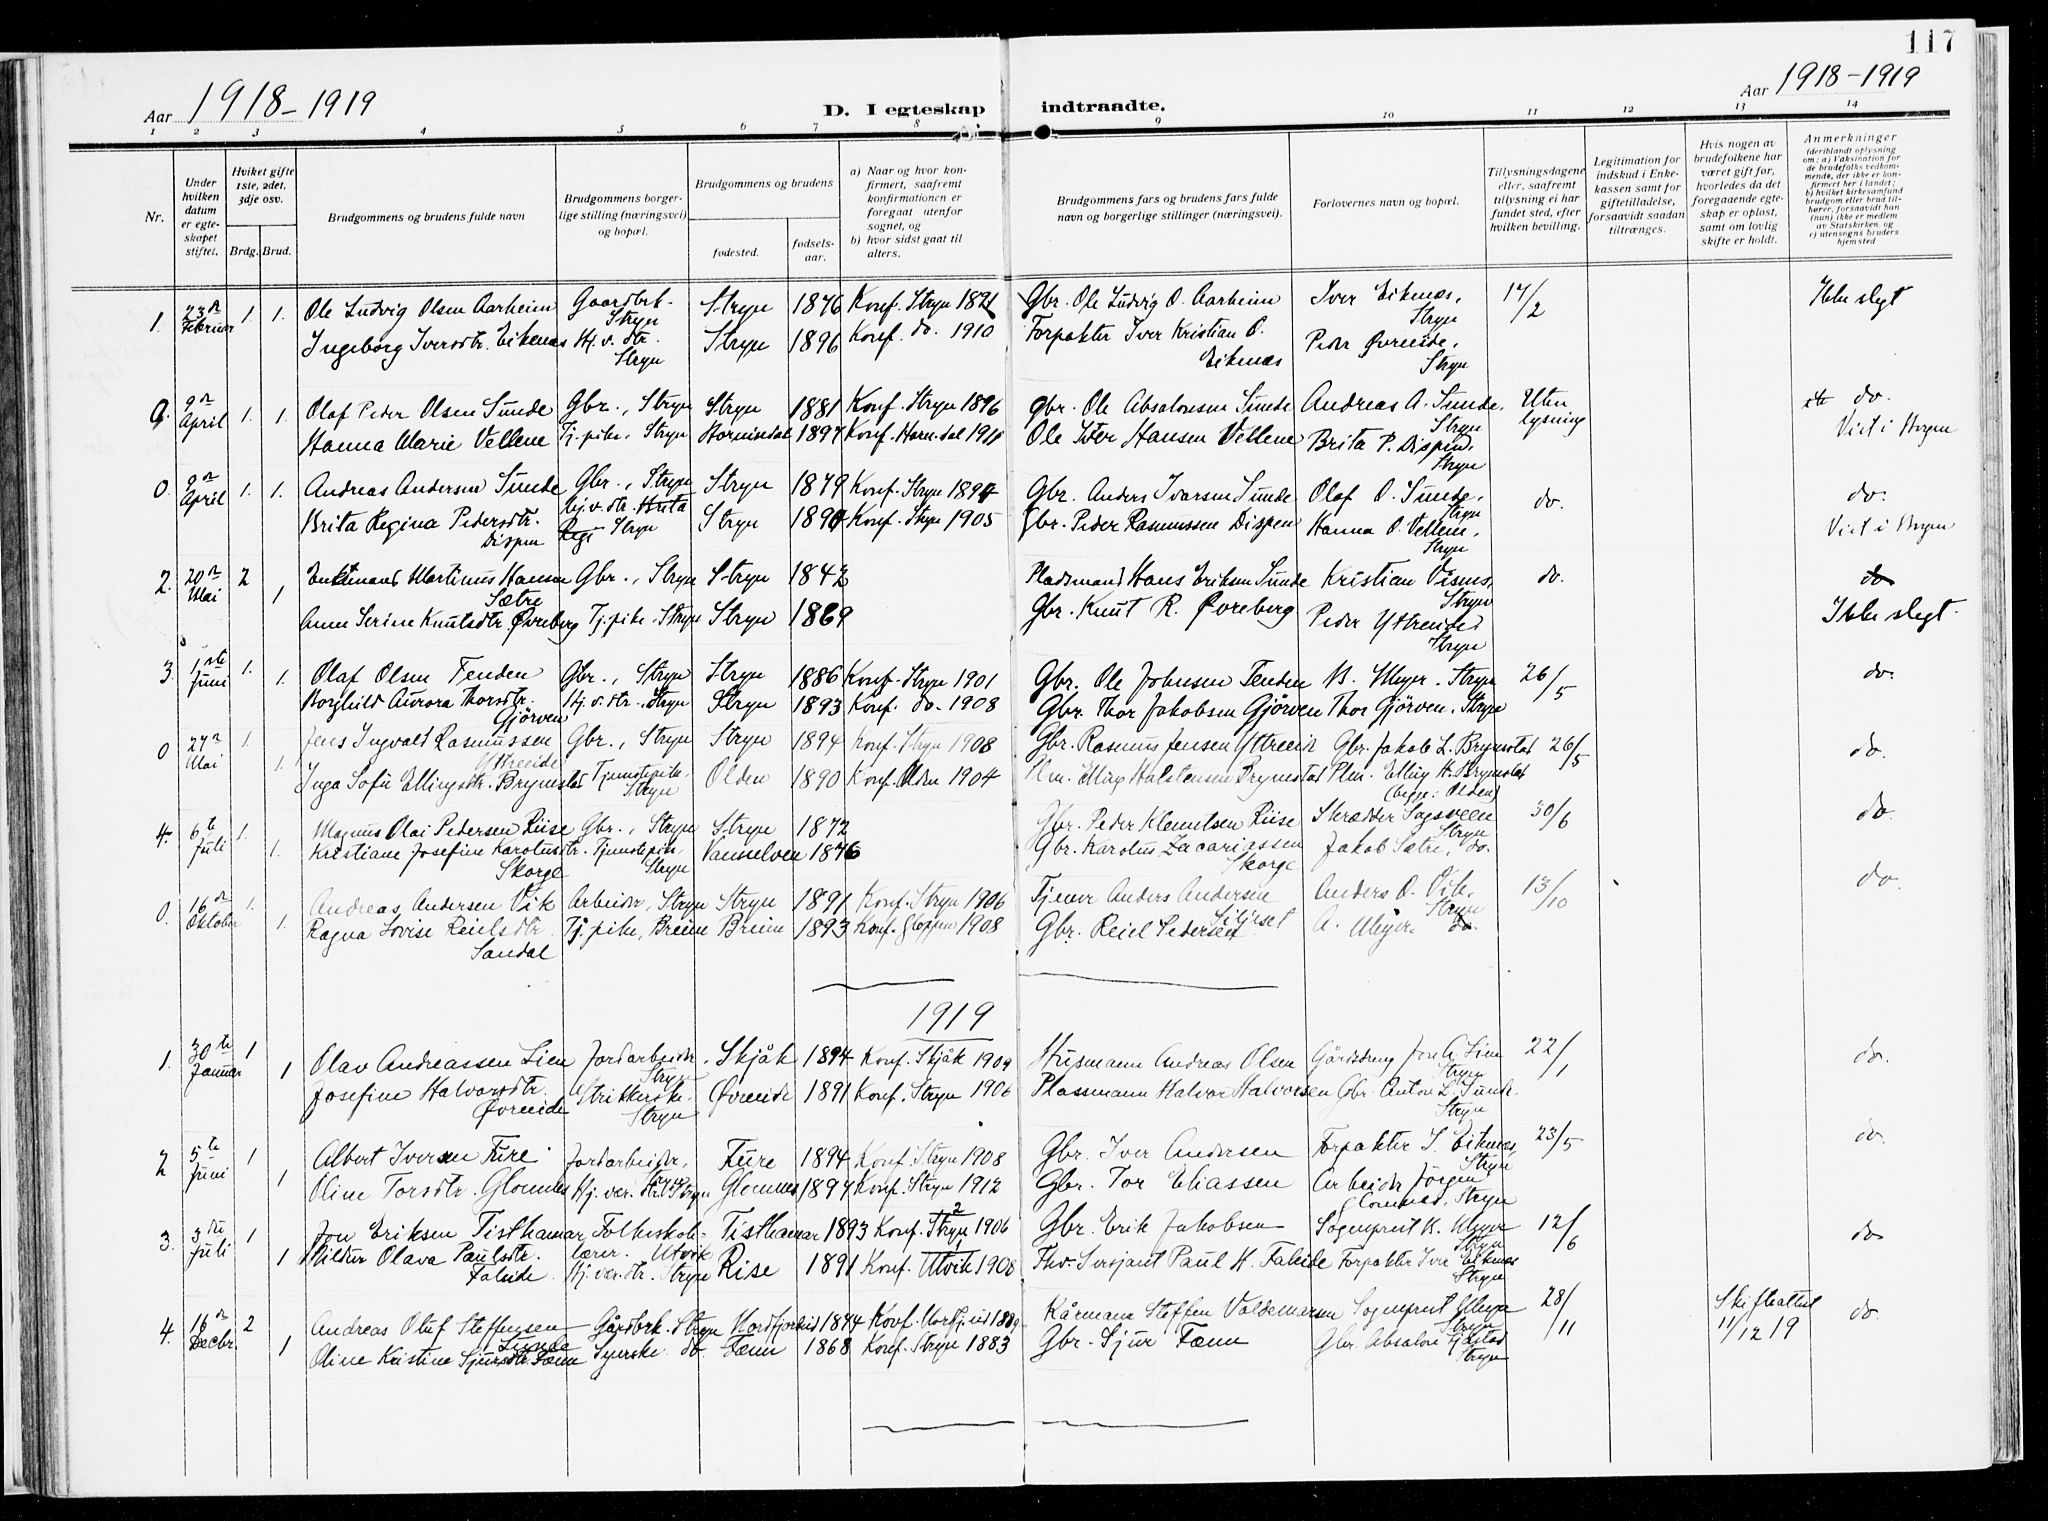 117
Aar 1918-1919
D. I egteskap indtraadte.
Aar 1918-1919
1 2 3 4 5 6 7 8 9 10 11 12 13 14
Nr.
Under hvilken datum er egteskapet stiftet.
Hviket gifte 1ste, 2det, 3dje osv.
Brdg. Brud.
Brudgommens og brudens fulde navn
Brudgommens borgerlige stilling (næringsvei) og bopæl.
Brudgommens og brudens
fødested.
fødselsaar.
a) Naar og hvor konfirmert, saafremt konfirmationen er foregaat utenfor sognet, og
b) hvor sidst gaat til alters.
Brudgommens fars og brudens fars fulde navn og borgerlige stillinger (næringsvei).
Forlovernes navn og bopæl.
Tillysningsdagene eller, saafremt tillysning ei har fundet sted, efter hvilken bevilling.
Legitimation for indskud i Enkekassen samt for giftetilladelse, forsaavidt saadan tiltrænges.
Hvis nogen av brudefolkene har været gift før, hvorledes da det foregaaende egteskap er opløst, samt om lovlig skifte er holdt.
Anmerkninger (deriblandt oplysning om: a) Vaksination for de brudefolks vedkommende, der ikke er konfirmert her i landet; b) hvilket kirkesamfund brudgom eller brud tilhører, forsaavidt han (hun) ikke er medlem av Statskirken, og c) utensogns bruders hjemsted
1. 23de Februar 1. 1. Ole Ludvig Olsen Aarheim Gaardbrk. Stryn Stryn 1876 Konf. Stryn 1891 Gbr. Ole Ludvig O. Aarheim Iver Eikenæs, Stryn 14/2 Ikke slegt
Ingeborg Iversdtr. Eikenæs Hj.v. dtr. Stryn Stryn 1896 Konf. do. 1910 Forpakter Iver Kristian P. Eikenæs Peder Øvreeide, Stryn
9de April 1. 1. Olaf Peder Olsen Sunde Gbr., Stryn Stryn 1881 Konf. Stryn 1896 Gbr. Ole Absalonsen Sunde Andreas A. Sunde, Stryn Uten lysning do.
Hanna Marie Vellene Tj.pike, Stryn Hornindal 1894 Konf. Horndal Ole Hansen Vellene Brita P. Dispen, Stryn Viet i Bergen
0. 9de April 1. 1. Andreas Andersen Sunde Gbr., Stryn Stryn 1879 Konf. Stryn 1894 Gbr. Anders Ivarsen Sunde Olaf O. Sunde, Stryn do. do.
Brita Regina Pedersdtr. Dispen Hj.v. dtr. Stryn Stryn 1890 Konf. Stryn 1905 Gbr. Peder Rasmussen Dispen Hanna O. Vellene, Stryn Viet i Bergen
2. 20de Mai 2 1 Enkemand Martinus Hansen Sætre Gbr., Stryn Stryn 1842 Pladsmand Hans Eriksen Sunde Kristian Visnes, Stryn do. do
Anne Serine Knutsdtr. Øvreberg Tj.pike, Stryn Stryn 1869 Gbr. Knut R. Øvreberg Peder Ytreeide Stryn Ikke slegt
3. 1ste Juni 1. 1. Olaf Olsen Tenden Gbr., Stryn Stryn 1886 Konf. Stryn 1901 Gbr. Ole Johnsen Tenden Meyer. Stryn 26/5 do.
Borghild Aurora Thorsdtr. Gjörven Hj.v. dtr. Stryn Stryn 1893 Konf. do. 1908 Gbr. Thor Jakobsen Gjörven Thor Gjörven, Stryn
0 27de Mai 1. 1. Jens Ingvald Rasmussen Ytreeide Gbr., Stryn Stryn 1894 Konf. Stryn 1908 Gbr. Rasmus Jensen Ytreeide Gbr. Jakob L. Brynestad 26/5 do.
Inga Sofie Ellingsdtr. Brynestad Tjenstepike Stryn Olden 1890 Konf. Olden 1904 Plm. Elling Halstensen Brynestad Plm. Elling H. Brynestad (begge: Olden)
4. 6te Juli 1. 1. Magnus Olai Pedersen Riise Gbr., Stryn Stryn 1872 Gbr. Peder Klemetsen Riise Skrædder Sagsveen Stryn 30/6 do.
Kristiane Josefine Karolusdtr. Skorge Tjenstepike Stryn Vanelven 1876 Gbr. Karolus Zacariassen Skorge Jakob Sætre, do.
0. 16de Oktober 1. 1. Andreas Andersen Vik Arbeider, Stryn Stryn 1891 Konf. Stryn 1906 Tjener Anders Andersen Anders O. Vik, Stryn 13/10 do.
Ragna Lovise Reielsdtr. Sandal Tj.pike, Breim Breim 1893 Konf. Gloppen 1908 Gbr. Reiel Pedersen A. Meyer. do.
1919
1. 30te Januar 1 1 Olav Andreassen Lien Jordarbeider Stryn Skjåk 1894 Konf. Skjåk 1909 Husmann Andreas Olsen Gårdsdreng Jon A. Lien Stryn 22/1 do.
Josefine Halvorsdtr. Øvreeide Strikkerske Stryn Øvreeide 1891 Konf. Stryn 1906 Plassmann Halvor Halvorsen Gbr. Anton L. Sunde Stryn
2 5te Juni 1 1 Albert Iversen Fure Jordarbeider, Stryn Fure 1894 Konf. Stryn 1908 Gbr. Iver Andersen Forpakter I. Eikenæs, Stryn 23/5 do.
Oline Torsdtr. Glomnes Hj.vær. dtr. Stryn Glomnes 1897 Konf. Stryn 1912 Gbr. Tor Eliassen Arbeider Jörgen Glomnes, Stryn
3. 3die Juli 1 1 Jon Eriksen Tisthamar Folkeskolelærer. Utvik Tisthamar 1893 Konf. Stryn 2 1906 Gbr. Erik Jakobsen Sogneprest K. Meyer Stryn 12/6 do
Hildur Olava Paulsdtr. Faleide Hj.vær.dtr. Stryn Rise 1891 Konf. Utvik 1 1908 Fhv. Sersjant Paul H. Faleide Forpakter Iver Eikenæs Stryn
4. 16de Decbr. 2 1 Andreas Oluf Steffensen Sunde Gårdbrk. Stryn Nordfjordeid 1874 Konf. Nordfj.eid 1889 Kårmann Steffen Valdemarsen Sogneprest Meyer Stryn 28/11 Skifteattest 11/12 19 do.
Oline Kristine Sjursdtr. Tænn Syerske do. Tænn 1868 Konf. Stryn 1883 Gbr. Sjur Tænn Gbr. Absalon Gjølstad Stryn